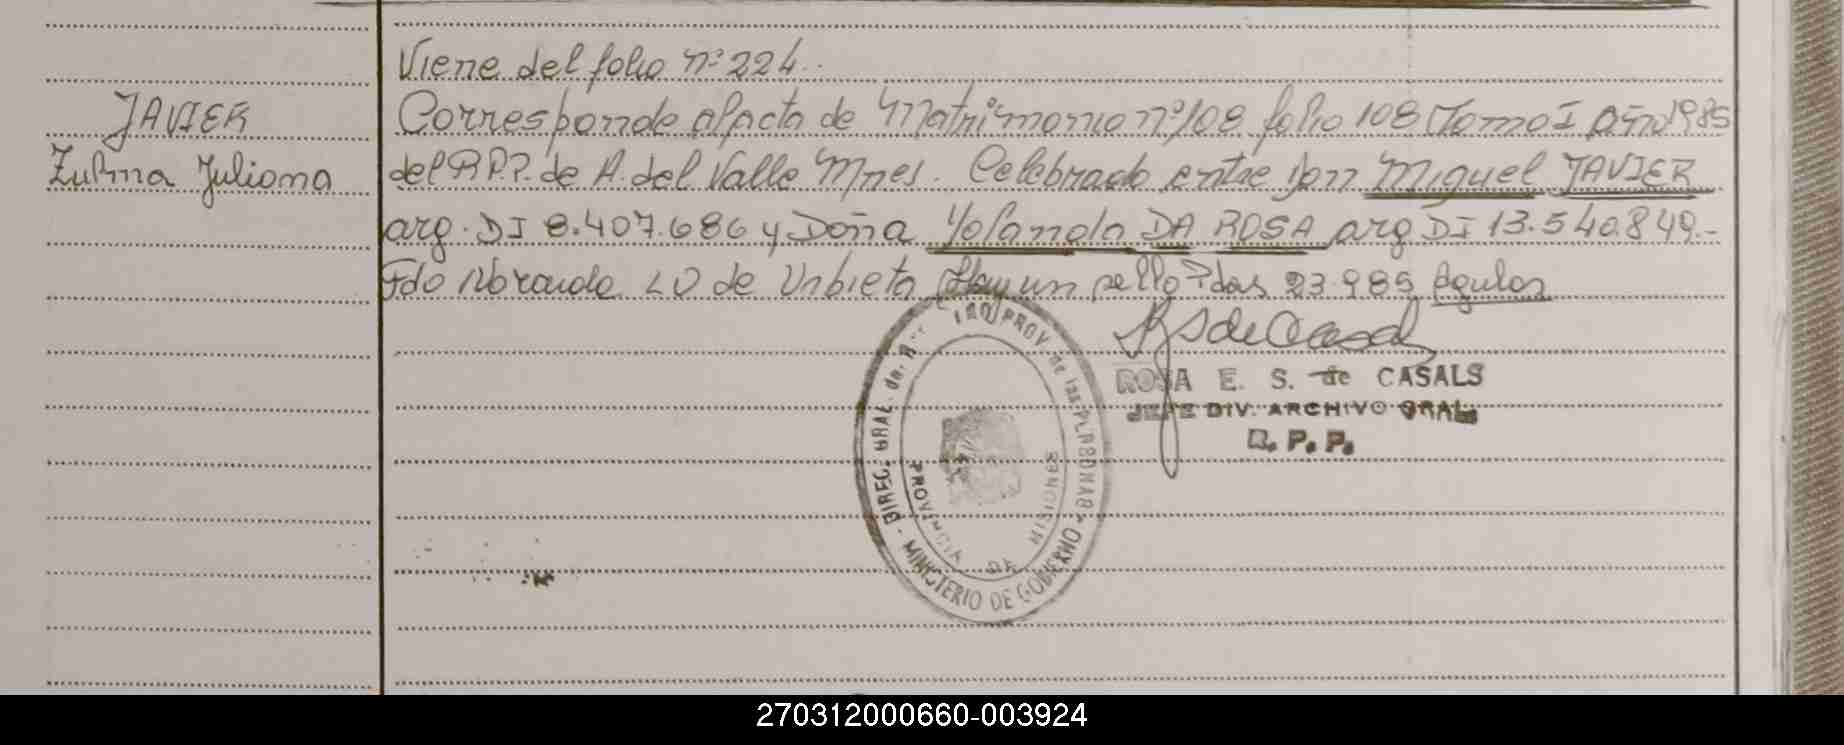 Viene del folio nº 224.
JAVIER
Zulma Juliana
Corresponde al acta de Matrimonio nº 108 folio 108 Tomo I Año 1985
del R.P.P. de A. del Valle Mnes. Celebrado entre Don Miguel JAVIER
arg. DI 8.407.686 y Doña Yolanda DA ROSA arg DI 13.540.849.-
Fdo de Urbieta Hay un sello Pdas 23.9.85
ROSA E. S. de CASALS
JEFE DIV. ARCHIVO GRAL.
R. P. P.
DIREC. GRAL. del REG. PROV. de las PERSONAS - MINISTERIO DE GOBIERNO
PROVINCIA DE MISIONES
270312000660-003924